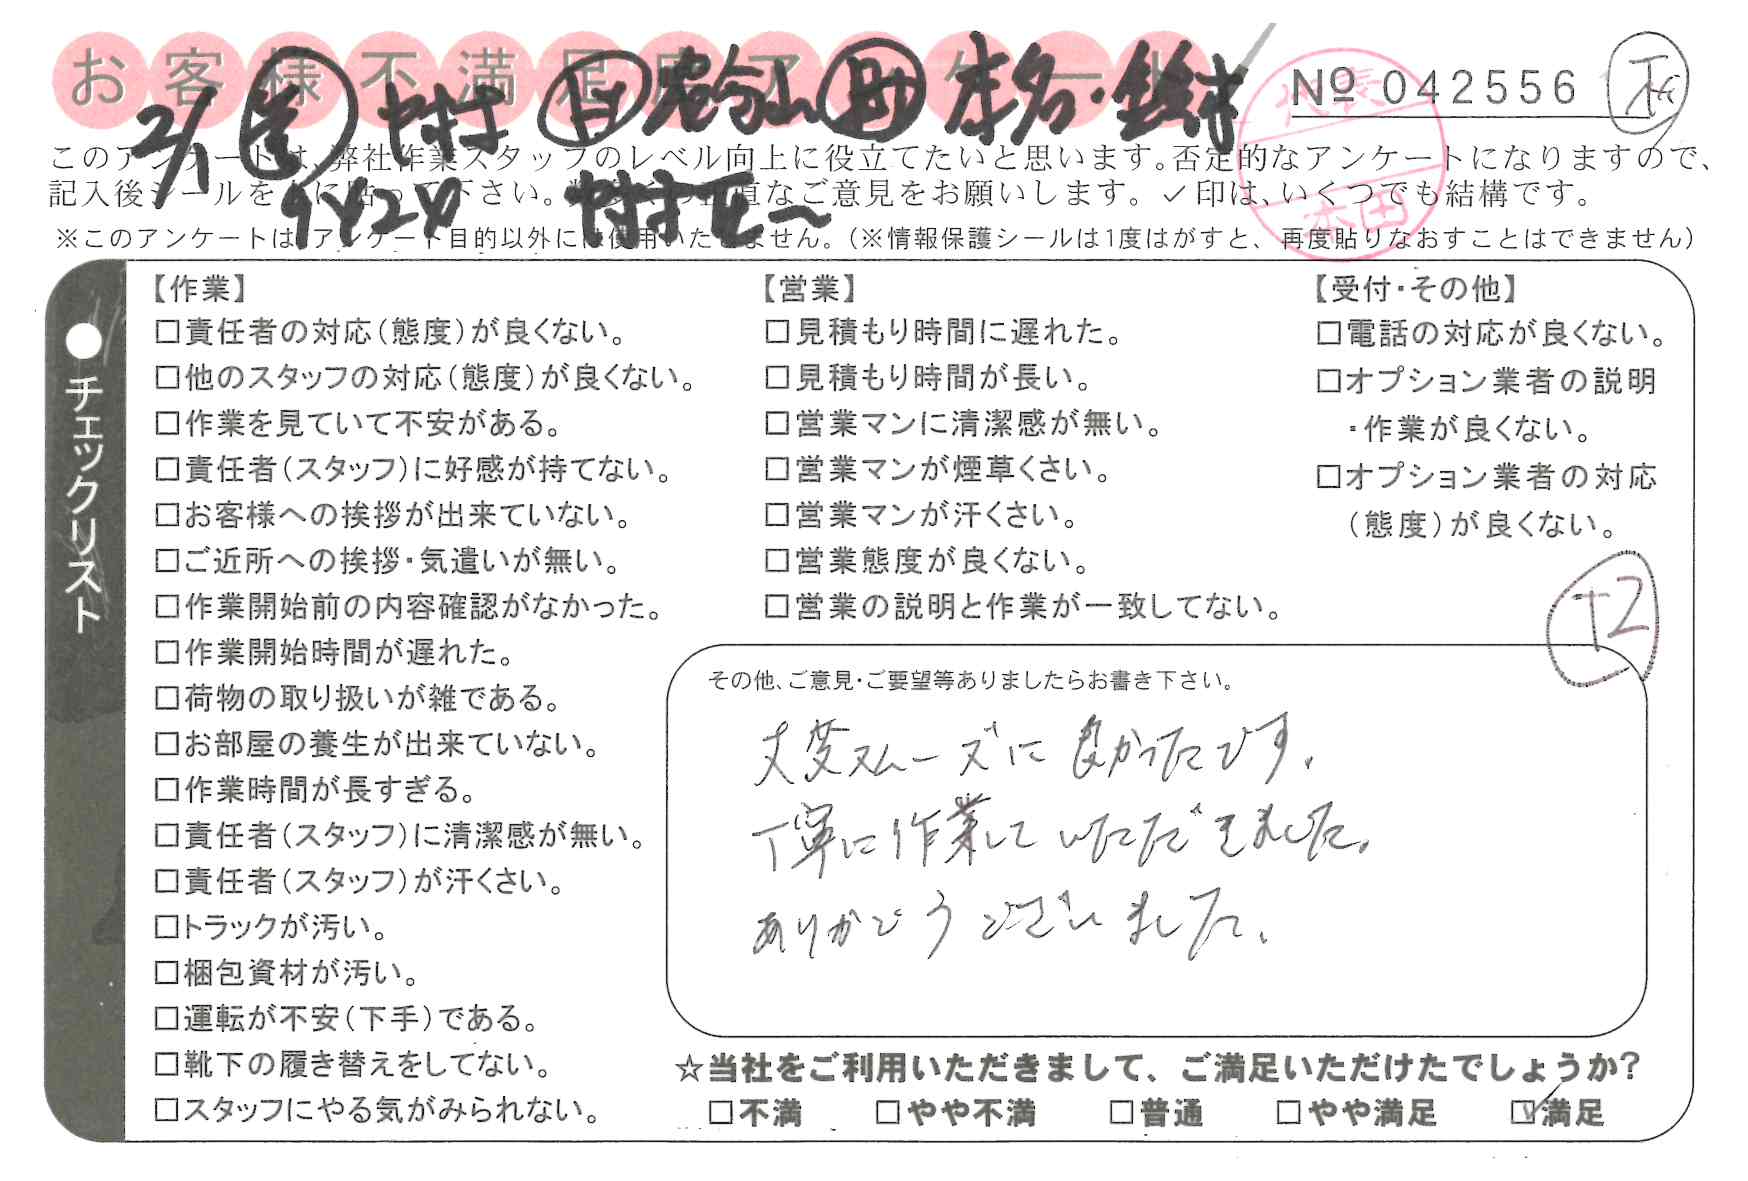 お客様不満足度アンケート
No 042556
代表
本田
2/1
本名・鈴木
このアンケートは、弊社作業スタッフのレベル向上に役立てたいと思います。否定的なアンケートになりますので、
記入後シールを上に貼って下さい。 正直なご意見をお願いします。✓印は、いくつでも結構です。
※このアンケートは、アンケート目的以外には使用いたしません。(※情報保護シールは1度はがすと、再度貼りなおすことはできません)
●チェックリスト
【作業】
□責任者の対応(態度)が良くない。
□他のスタッフの対応(態度)が良くない。
□作業を見ていて不安がある。
□責任者(スタッフ)に好感が持てない。
□お客様への挨拶が出来ていない。
□ご近所への挨拶・気遣いが無い。
□作業開始前の内容確認がなかった。
□作業開始時間が遅れた。
□荷物の取り扱いが雑である。
□お部屋の養生が出来ていない。
□作業時間が長すぎる。
□責任者(スタッフ)に清潔感が無い。
□責任者(スタッフ)が汗くさい。
□トラックが汚い。
□梱包資材が汚い。
□運転が不安(下手)である。
□靴下の履き替えをしてない。
□スタッフにやる気がみられない。
【営業】
□見積もり時間に遅れた。
□見積もり時間が長い。
□営業マンに清潔感が無い。
□営業マンが煙草くさい。
□営業マンが汗くさい。
□営業態度が良くない。
□営業の説明と作業が一致してない。
【受付・その他】
□電話の対応が良くない。
□オプション業者の説明
・作業が良くない。
□オプション業者の対応
(態度)が良くない。
+2
その他、ご意見・ご要望等ありましたらお書き下さい。
大変スムーズに良かったです。
丁寧に作業していただきました。
ありがとうございました。
☆当社をご利用いただきまして、ご満足いただけたでしょうか?
□不満 □やや不満 □普通 □やや満足 ☑満足